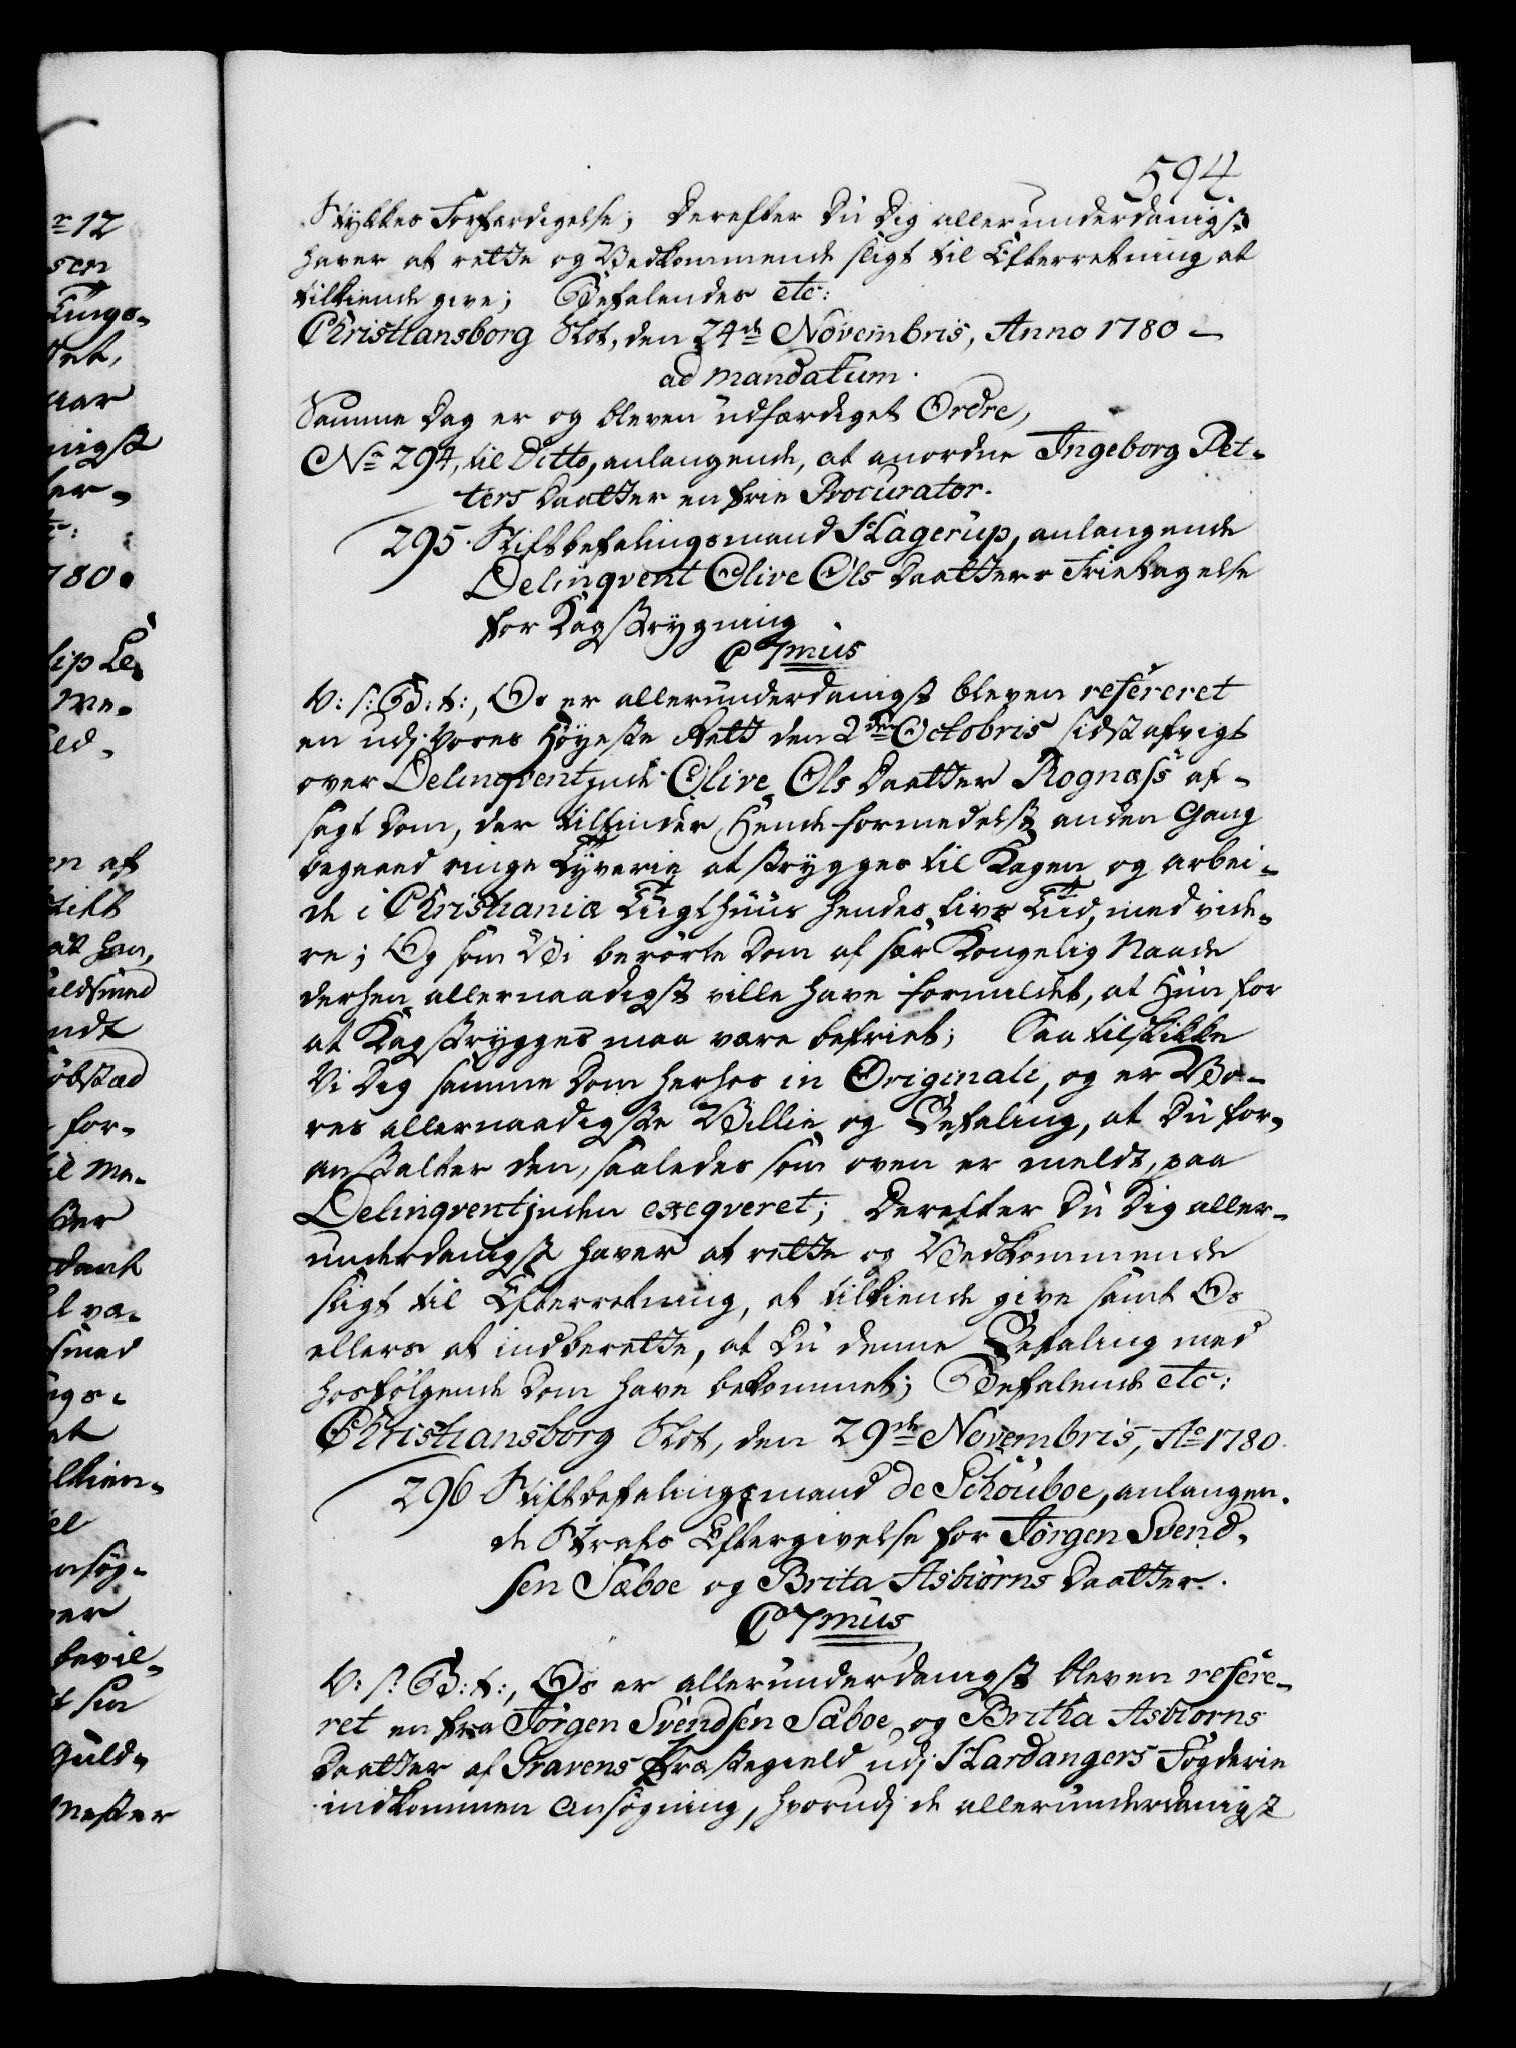 594
Stykkes Forfærdigelse; Derefter Du Dig allerunderdanigst
haver at rette og Vedkommende sligt til Efterretning at
tilkiende give; Befalendes etc:
Christiansborg Slot, den 24de Novembris, Anno 1780 –
ad mandatum.
Samme Dag er og bleven udfærdiget Ordre,
No 294, til Ditto, anlangende, at anordne Ingeborg Pet-
ters Daatter en frie Procurator.
295. Stiftbefalingsmand Hagerup, anlangende
Delinqvent Olive Ols Daatters Fritagelse
for Kagstrygning
C 7mus
V: s: G: t:, Os er allerunderdanigst bleven refereret
en udj Vores Høyeste Rett den 2den Octobris sidst afvigt
over Delinqventinde Olive Ols Daatter Rognæss af-
sagt Dom, der tilfinder Hende formedelst anden Gang
begaaed ringe Tyverie at stryges til Kagen og arbei-
de i Christiania Tugthuus hendes Livs Tid, med vide-
re; Og som Vi berørte Dom af sær Kongelig Naade
derhen allernaadigst ville have formildet, at Hun for
at Kagstryges maa være befriet; Saa tilskikke
Vi Dig samme Dom herhos in Originali, og er Vo-
res allernaadigste Villie og Befaling, at Du for-
anstalter den, saaledes som oven er meldt, paa
Delinqventinden exeqveret; Derefter Du Dig aller-
underdanigst haver at rette og Vedkommende
sligt til Efterretning, at tilkiende give samt Os
ellers at indberette, at Du denne Befaling med
hosfølgende Dom have bekommet; Befalende etc:
Christiansborg Slot, den 29de Novembris, Ao 1780.
296 Stiftbefalingsmand de Schouboe, anlangen-
de Strafs Eftergivelse for Jørgen Svend-
sen Sæboe og Brita Asbiørns Daatter.
C 7mus
V: s: G: t:, Os er allerunderdanigst bleven refere-
ret en fra Jørgen Svendsen Sæboe og Britha Asbiorns
Daatter af Gravens Præstegield udj Hardangers Fogderie
indkommen Ansøgning, hvorudj de allerunderdanigst